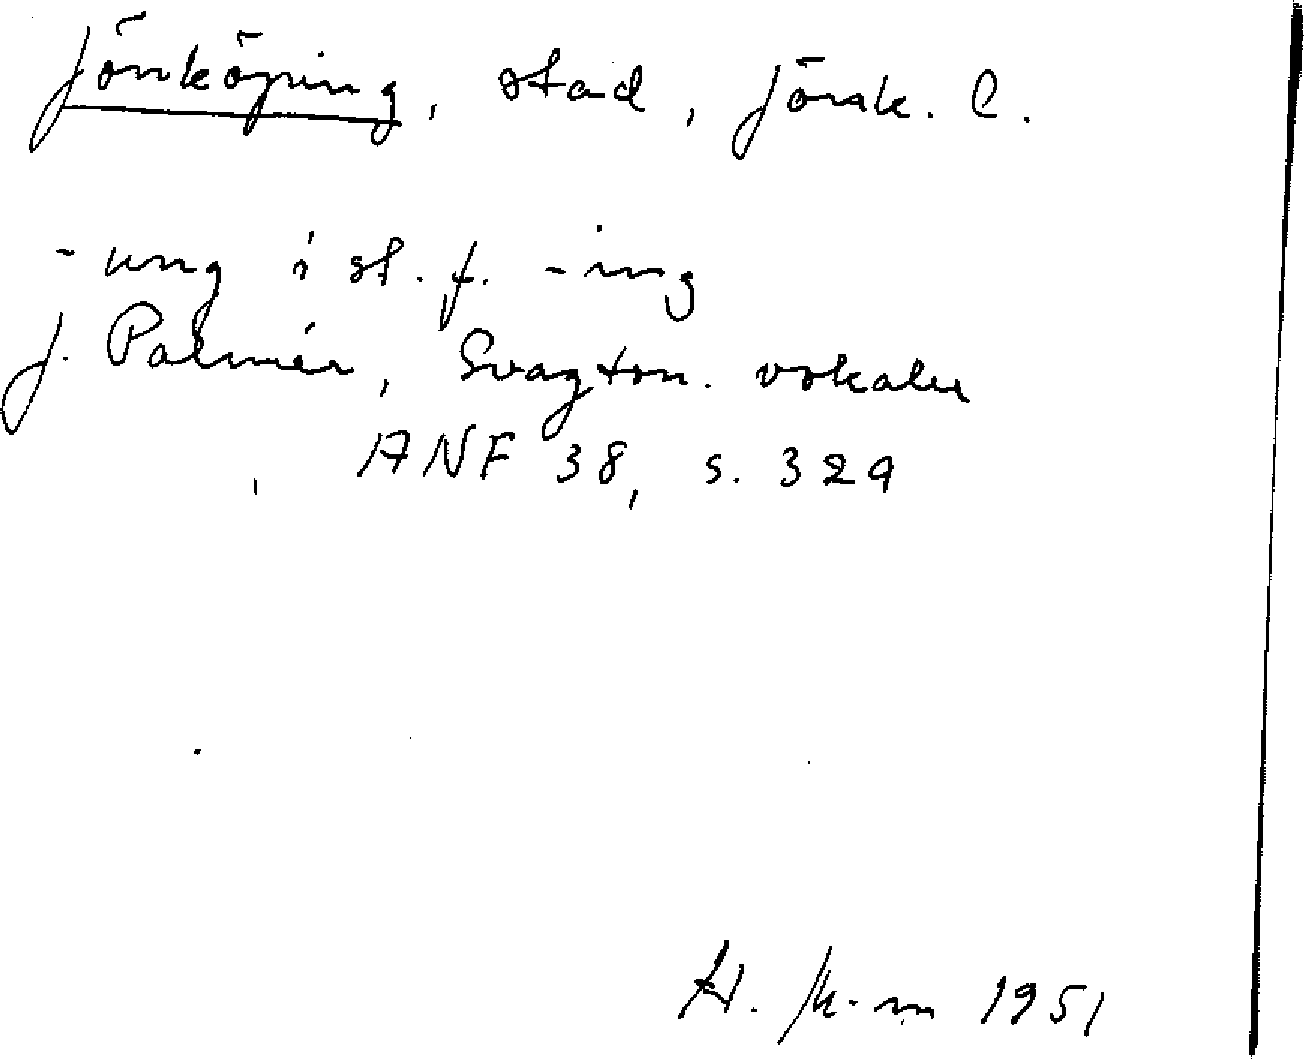 Jönköping, stad, Jönk. l.
-ung i st. f. -ing
J. Palmér, Svagton. vokaler
ANF 38, s. 329
1951